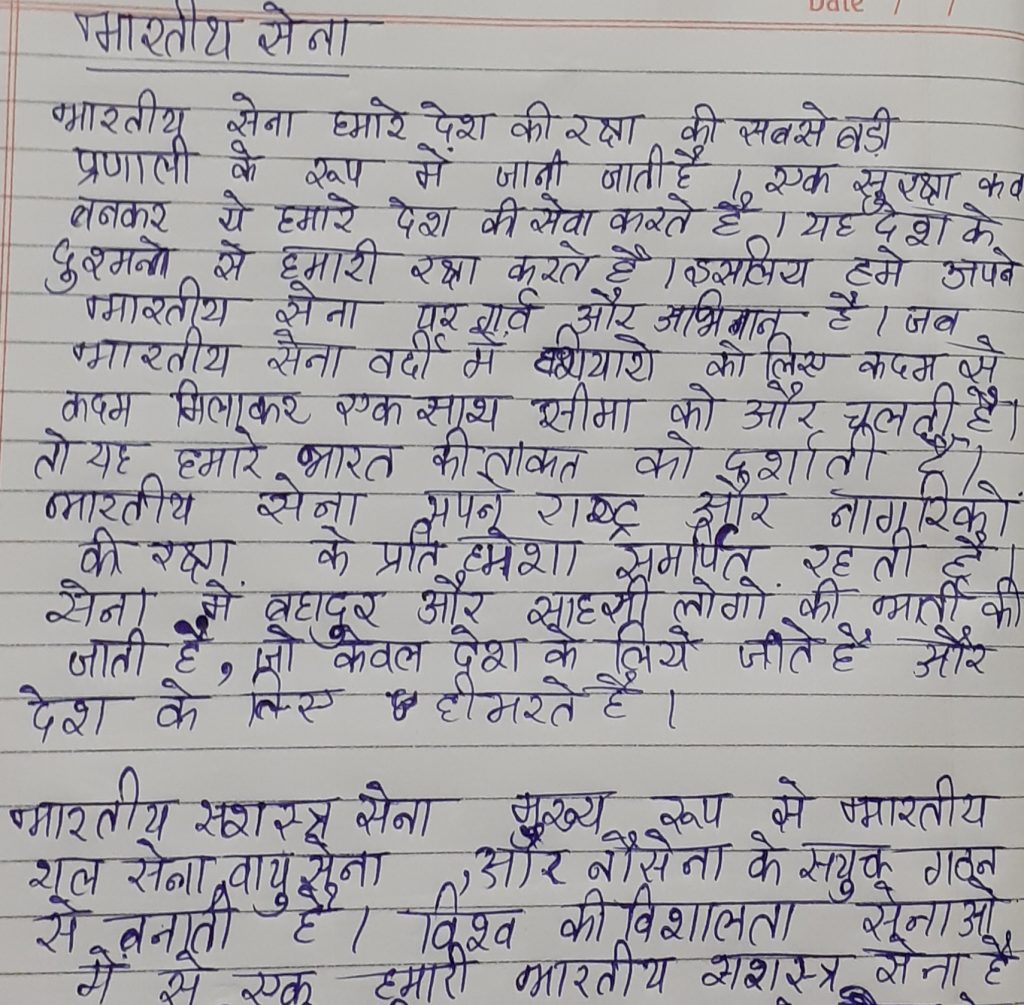 Date / /
भारतीय सेना
भारतीय सेना हमारे देश की रक्षा की सबसे बड़ी
प्रणाली के रूप में जानी जाती है । एक सुरक्षा कव
बनकर ये हमारे देश की सेवा करते है । यह देश के
दुश्मनो से हमारी रक्षा करते है । इसलिय हमे अपने
भारतीय सेना पर गर्व और अभिमान है । जब
भारतीय सेना वर्दी में को लिए कदम से
कदम मिलाकर एक साथ सीमा को और चलती है।
तो यह हमारे भारत की ताकत को दर्शाती है।
भारतीय सेना अपने राष्ट्र और नागरिको
की रक्षा के प्रति हमेशा समर्पित रहती है।
सेना में बहादुर और साहसी लोगो की भर्ती की
जाती है, जो केवल देश के लिये जीते है और
देश के लिए ही मरते है ।
भारतीय सशस्त्र सेना मुख्य रूप से भारतीय
थल सेना, वायु सेना , और नौसेना के सयुक्त गठन
से बनती है । विश्व की विशालता सेनाओ
में से एक हमारी भारतीय सशस्त्र सेना है